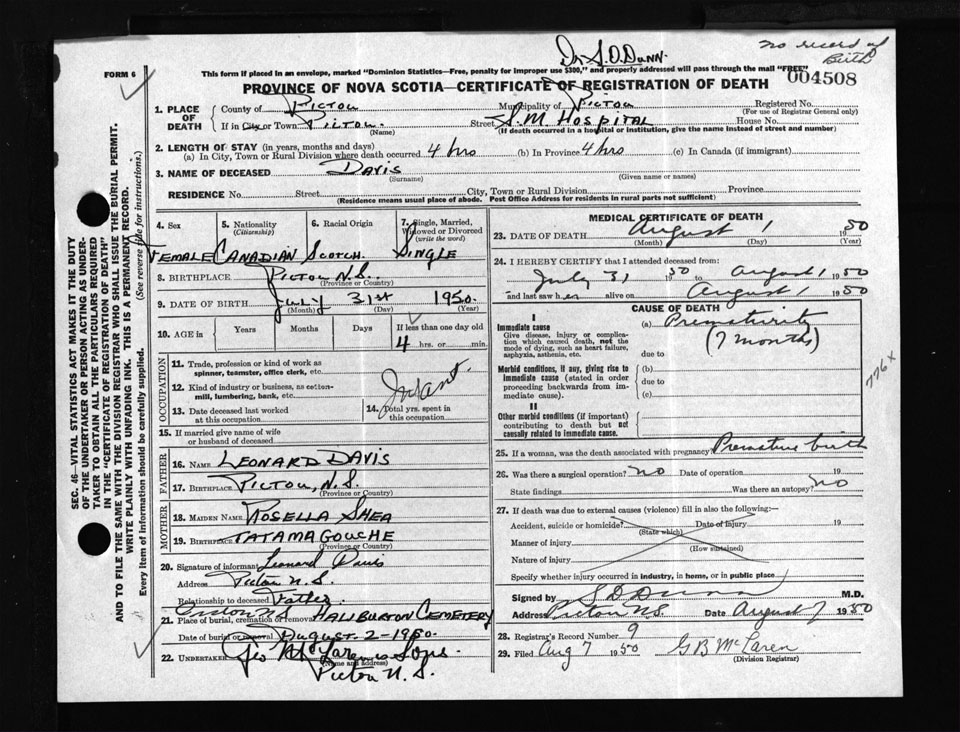 Dr S.D. Dunn.
no record of Birth
FORM 6
This form if placed in an envelope, marked "Dominion Statistics—Free, penalty for improper use $300," and properly addressed will pass through the mail "FREE"
004508
PROVINCE OF NOVA SCOTIA—CERTIFICATE OF REGISTRATION OF DEATH
1. PLACE OF DEATH
County of Pictou Municipality of Pictou Registered No.
(For use of Registrar General only)
If in City or Town Pictou. Street S.M. Hospital House No.
(Name) (If death occurred in a hospital or institution, give the name instead of street and number)
2. LENGTH OF STAY (in years, months and days)
(a) In City, Town or Rural Division where death occurred 4 hrs (b) In Province 4 hrs (c) In Canada (if immigrant)
3. NAME OF DECEASED Davis
(Surname) (Given name or names)
RESIDENCE No. Street City, Town or Rural Division Province
(Residence means usual place of abode. Post Office Address for residents in rural parts not sufficient)
SEC. 46—VITAL STATISTICS ACT MAKES IT THE DUTY
OF THE UNDERTAKER OR PERSON ACTING AS UNDER-
TAKER TO OBTAIN ALL THE PARTICULARS REQUIRED
IN THE "CERTIFICATE OF REGISTRATION OF DEATH"
AND TO FILE THE SAME WITH THE DIVISION REGISTRAR WHO SHALL ISSUE THE BURIAL PERMIT.
WRITE PLAINLY WITH UNFADING INK. THIS IS A PERMANENT RECORD.
Every item of Information should be carefully supplied. (See reverse side for instructions.)
4. Sex 5. Nationality (Citizenship) 6. Racial Origin 7. Single, Married, Widowed or Divorced (write the word)
Female Canadian Scotch. Single
8. BIRTHPLACE Pictou N.S.
(Province or Country)
9. DATE OF BIRTH July 31st 1950.
(Month) (Day) (Year)
10. AGE in Years Months Days If less than one day old
4 hrs. or min.
OCCUPATION
11. Trade, profession or kind of work as
spinner, teamster, office clerk, etc.
12. Kind of industry or business, as cotton-
mill, lumbering, bank, etc.
Infant.
13. Date deceased last worked
at this occupation
14. Total yrs. spent in
this occupation
15. If married give name of wife
or husband of deceased
FATHER
16. NAME Leonard Davis
17. BIRTHPLACE Pictou, N.S.
(Province or Country)
MOTHER
18. MAIDEN NAME Rosella Shea
19. BIRTHPLACE Tatamagouche
(Province or Country)
20. Signature of informant Leonard Davis
Address Pictou N.S.
Relationship to deceased Father
21. Place of burial, cremation or removal Haliburton Cemetery
Date of burial or removal August 2-1950.
22. UNDERTAKER Geo McLaren & Sons.
(Name and address)
Pictou N.S.
MEDICAL CERTIFICATE OF DEATH
23. DATE OF DEATH August 1 1950
(Month) (Day) (Year)
24. I HEREBY CERTIFY that I attended deceased from:
July 31 1950 to August 1 1950
and last saw her alive on August 1 1950
CAUSE OF DEATH
I
Immediate cause
Give disease, injury or complica-
tion which caused death, not the
mode of dying, such as heart failure,
asphyxia, asthenia, etc.
(a) Prematurity
(7 months)
due to
Morbid conditions, if any, giving rise to
immediate cause (stated in order
proceeding backwards from im-
mediate cause).
(b)
due to
(c)
II
Other morbid conditions (if important)
contributing to death but not
causally related to immediate cause.
776 x
25. If a woman, was the death associated with pregnancy? Premature birth
26. Was there a surgical operation? no Date of operation 19
State findings Was there an autopsy? no
27. If death was due to external causes (violence) fill in also the following:—
Accident, suicide or homicide? Date of injury 19
(State which)
Manner of injury
(How sustained)
Nature of injury
Specify whether injury occurred in industry, in home, or in public place
Signed by S D Dunn M.D.
Address Pictou N.S. Date August 7 1950
28. Registrar's Record Number 9
29. Filed Aug 7 1950 G B McLaren
(Division Registrar)